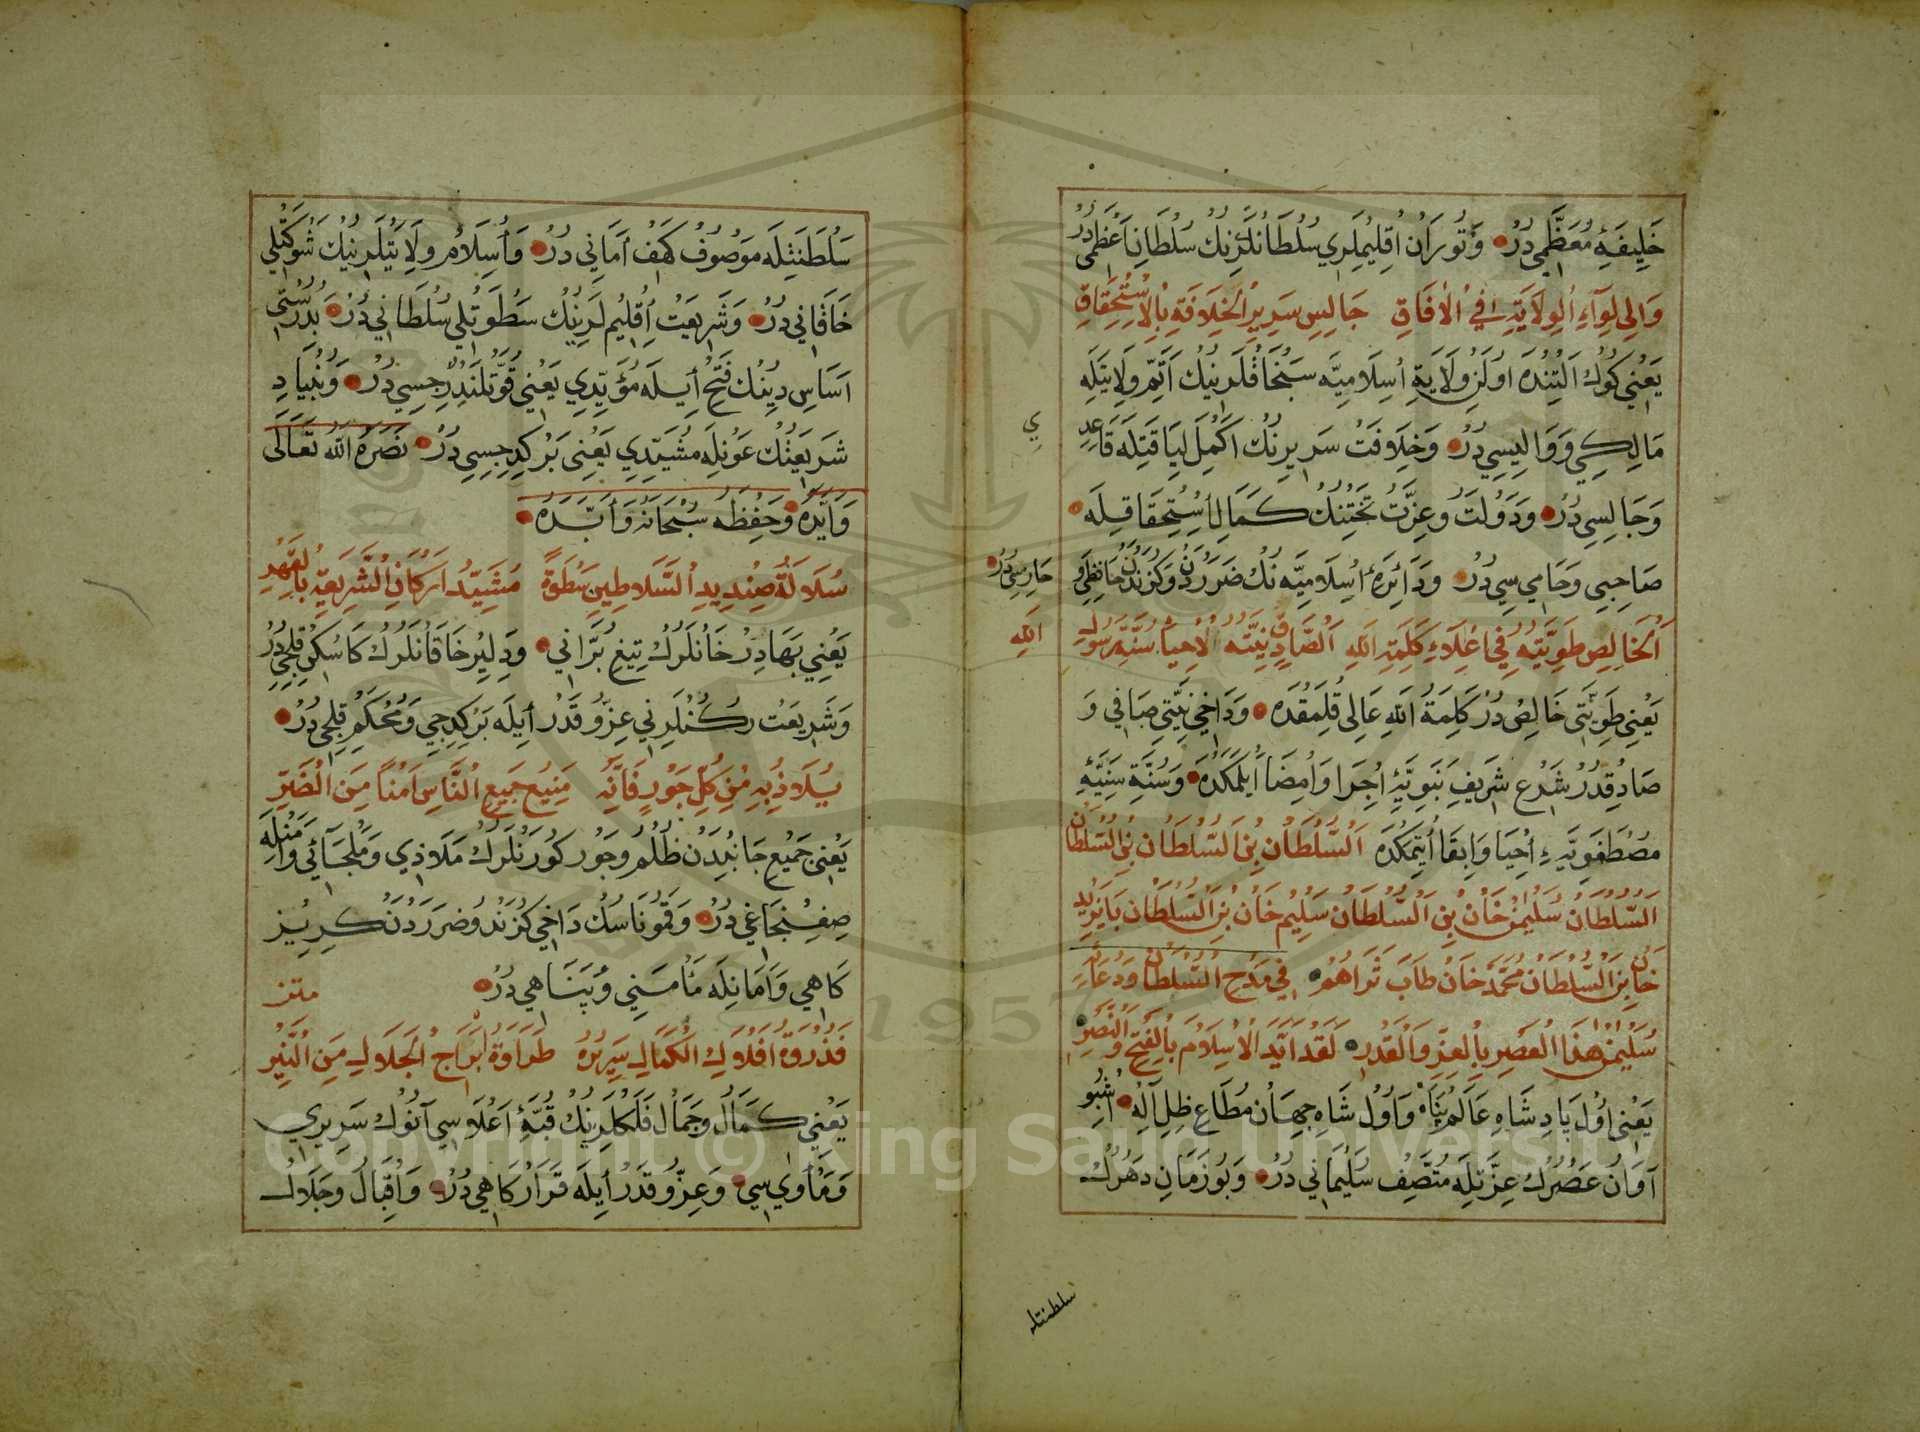 خليفه معظمي در وتوران اقليملري سلطانلرنك سلطان اعظمى در
والى لواء الولاية في الافاق جالس سرير الخلافة بالاستحقاق
يعني كوك التنده اولن ولاية اسلاميه سنجاقلرينك اتم ولايتله
مالكي و واليسي در وخلافت سريرنك اكمل لياقتله قاعدي
وجالسي در ودولت وعزت تختنك كمال استحقاقله
صاحبي وحامي سي در ودائره اسلاميه نك ضرردن وكزنددن حافظي و حارسي در
الخالص طويته في اعلاء كلمة الله الصادق نيته لاحياء سنة رسول الله
يعني طويتى خالص در كلمة الله عالى قلمقده وداخي نيتي صافي و
صادقدر شرع شريف نبويه اجرا وامضا ايلمكده وسنة سنيه
مصطفويه احيا وابقا ايتمكده السلطان بن السلطان بن السلطان
السلطان سليمن خان بن السلطان سليم خان بن السلطان بايزيد
خان بن السلطان محمد خان طاب ثراهم في مدح السلطان ودعاء
سليمن هذا العصر بالعز والقدر لقد ايد الاسلام بالفتح والنصر
يعني اول پادشاه عالم پناه واول شاه جهان مطاع ظل آله اشبو
آوان عصرك عزتله متصف سليماني در وبو زمان دهرك
سلطنتله
سلطنتله موصوف كهف اماني در واسلام ولايتلرينك شوكتلي
خاقاني در وشريعت اقليملرينك سطوتلي سلطاني در بدرستى
اساس دينك فتح ايله مؤيدي يعني قوتلندرجسي در وبنياد
شريعتك عونله مشيدي يعني بركدجسي در نصره الله تعالى
وايده وحفظه سبحانه وأبده
سلالة صنديد السلاطين سطوة مشيد اركان الشريعة بالقهر
يعني بهادر خانلرك تيغ براني ودلير خاقانلرك كاسكن قلجي در
وشريعت ركنلرني عز وقدر ايله بركدجي ومحكم قلجي در
يلاذ به من كل جور فانه منيع جميع الناس امنا من الضر
يعني جميع جانبدن ظلم وجور كورنلرك ملاذي وملجائي وامنله
صغنجاغي در وقمو ناسك داخي كزند وضرردن كريز
كاهي وامانله مأمني وپناهي در متن
فذروة افلاك الكمال سريره طراوة ابراج الجلال من النير
يعني كمال وجمال فلكلرينك قبة اعلاسي آنوك سريري
ومأوي سي وعز وقدر ايله قراركاهي در واقبال وجلال